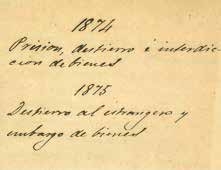 1874
Prision, destierro é interdic-
cion de bienes
1875
Destierro al estrangero y
embargo de bienes